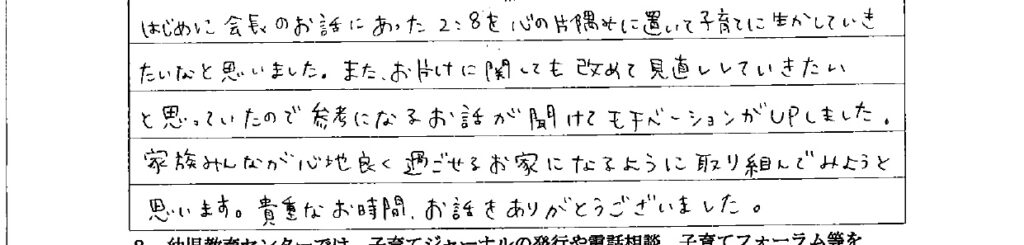 はじめに会長のお話にあった2:8を心の片隅せに置いて子育てに生かしていき
たいなと思いました。また、お片けに関しても改めて見直ししていきたい
と思っていたので参考になるお話が聞けてモチベーションがUPしました。
家族みんなが心地良く過ごせるお家になるように取り組んでみようと
思います。貴重なお時間、お話をありがとうございました。
8 幼児教育センターでは、子育てジャーナルの発行や電話相談、子育てフォーラム等を